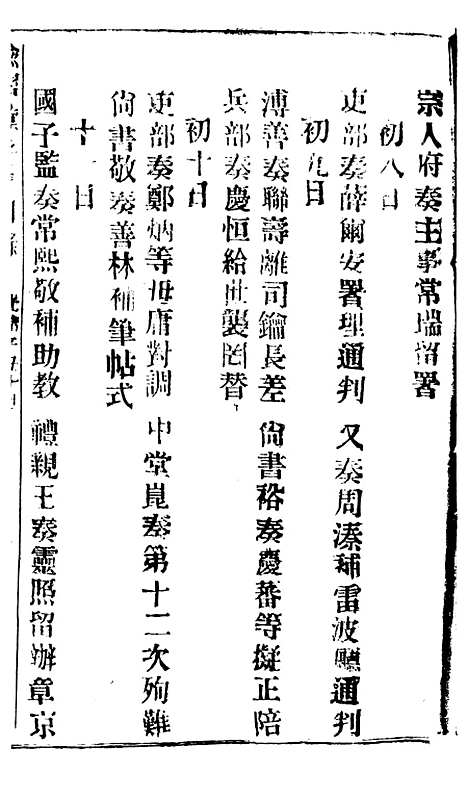 宗人府奏主事常瑞留署
初八日
吏部奏薛爾安署理通判　又奏周溱補雷波廳通判
初九日
溥善奏聯壽離司鑰長差　尙書裕奏慶蕃等擬正陪
兵部奏慶恒給世襲罔替
初十日
吏部奏鄭炳等毋庸對調　中堂崑奏第十二次殉難
尙書敬奏善林補筆帖式
十一日
國子監奏常熙敬補助教　禮親王奏靈照留辦章京